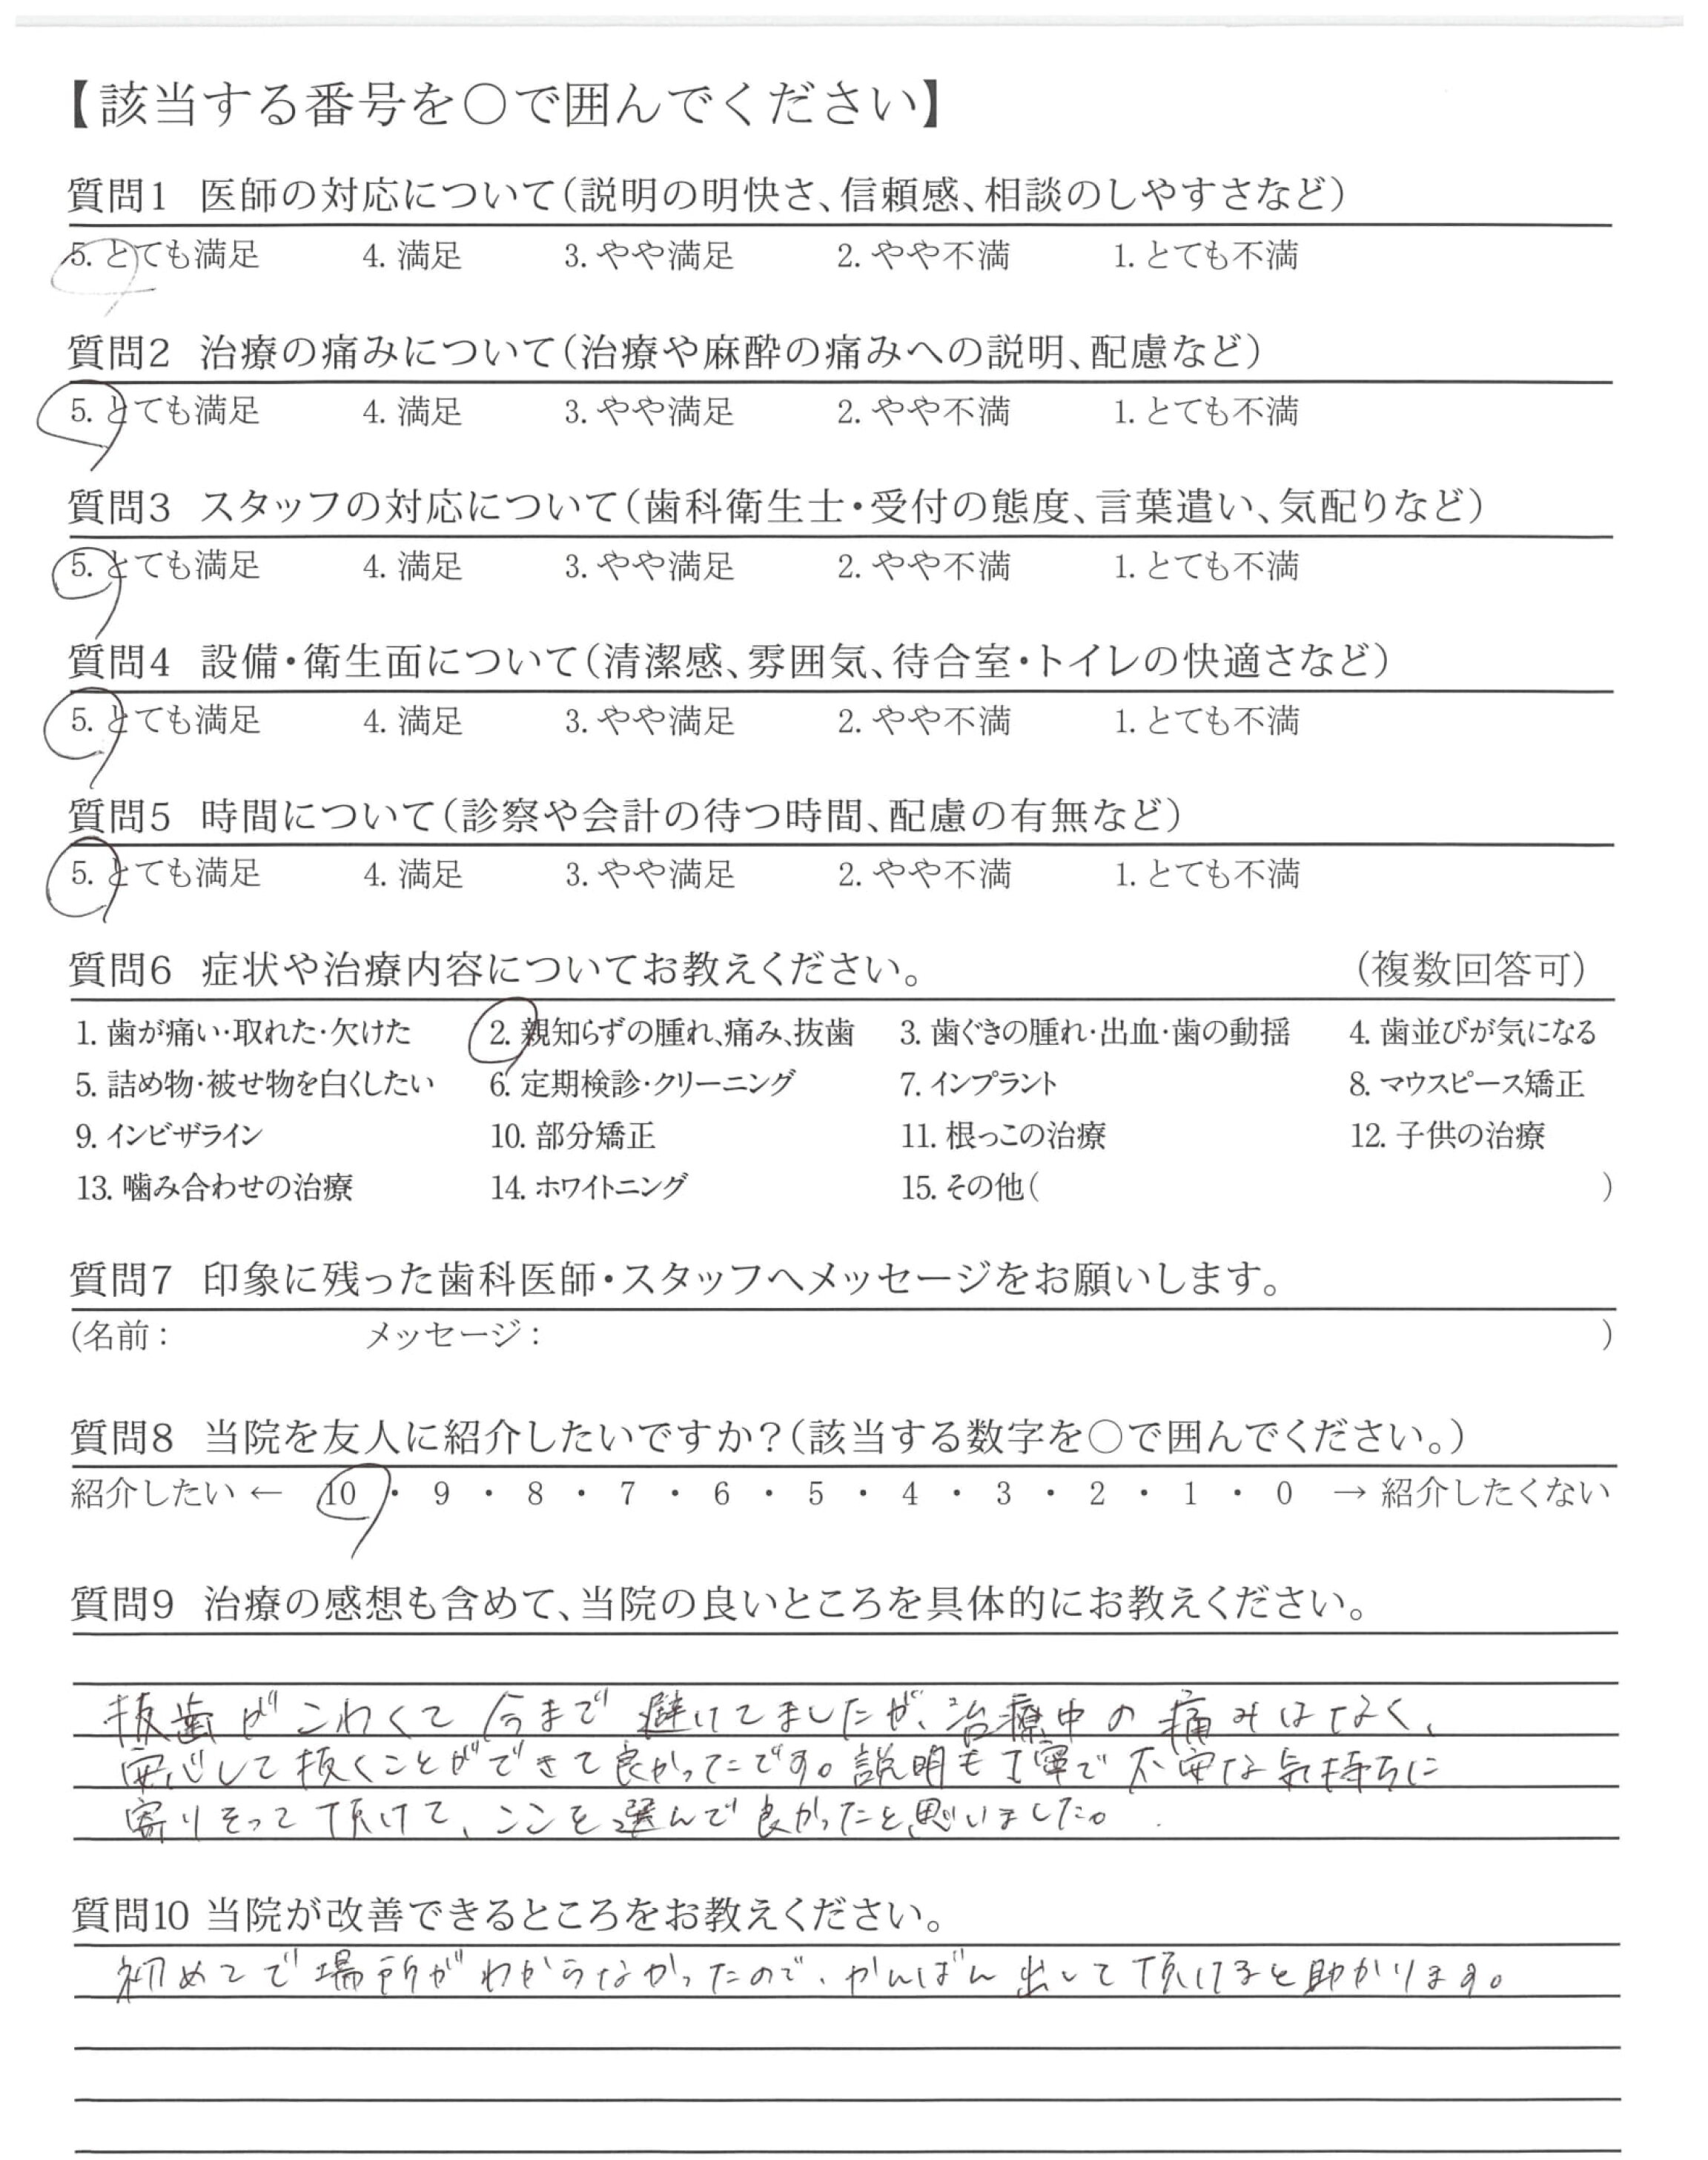 【該当する番号を○で囲んでください】
質問1 医師の対応について(説明の明快さ、信頼感、相談のしやすさなど)
5. とても満足 4. 満足 3. やや満足 2. やや不満 1. とても不満
質問2 治療の痛みについて(治療や麻酔の痛みへの説明、配慮など)
5. とても満足 4. 満足 3. やや満足 2. やや不満 1. とても不満
質問3 スタッフの対応について(歯科衛生士・受付の態度、言葉遣い、気配りなど)
5. とても満足 4. 満足 3. やや満足 2. やや不満 1. とても不満
質問4 設備・衛生面について(清潔感、雰囲気、待合室・トイレの快適さなど)
5. とても満足 4. 満足 3. やや満足 2. やや不満 1. とても不満
質問5 時間について(診察や会計の待つ時間、配慮の有無など)
5. とても満足 4. 満足 3. やや満足 2. やや不満 1. とても不満
質問6 症状や治療内容についてお教えください。 (複数回答可)
1. 歯が痛い・取れた・欠けた 2. 親知らずの腫れ、痛み、抜歯 3. 歯ぐきの腫れ・出血・歯の動揺 4. 歯並びが気になる
5. 詰め物・被せ物を白くしたい 6. 定期検診・クリーニング 7. インプラント 8. マウスピース矯正
9. インビザライン 10. 部分矯正 11. 根っこの治療 12. 子供の治療
13. 噛み合わせの治療 14. ホワイトニング 15. その他( )
質問7 印象に残った歯科医師・スタッフへメッセージをお願いします。
(名前: メッセージ: )
質問8 当院を友人に紹介したいですか?(該当する数字を○で囲んでください。)
紹介したい ← 10 ・ 9 ・ 8 ・ 7 ・ 6 ・ 5 ・ 4 ・ 3 ・ 2 ・ 1 ・ 0 → 紹介したくない
質問9 治療の感想も含めて、当院の良いところを具体的にお教えください。
抜歯がこわくて今まで避けてましたが、治療中の痛みはなく、
安心して抜くことができて良かったです。説明も丁寧で不安な気持ちに
寄りそって頂けて、ここを選んで良かったと思いました。
質問10 当院が改善できるところをお教えください。
初めてで場所がわからなかったので、かんばん出して頂けると助かります。